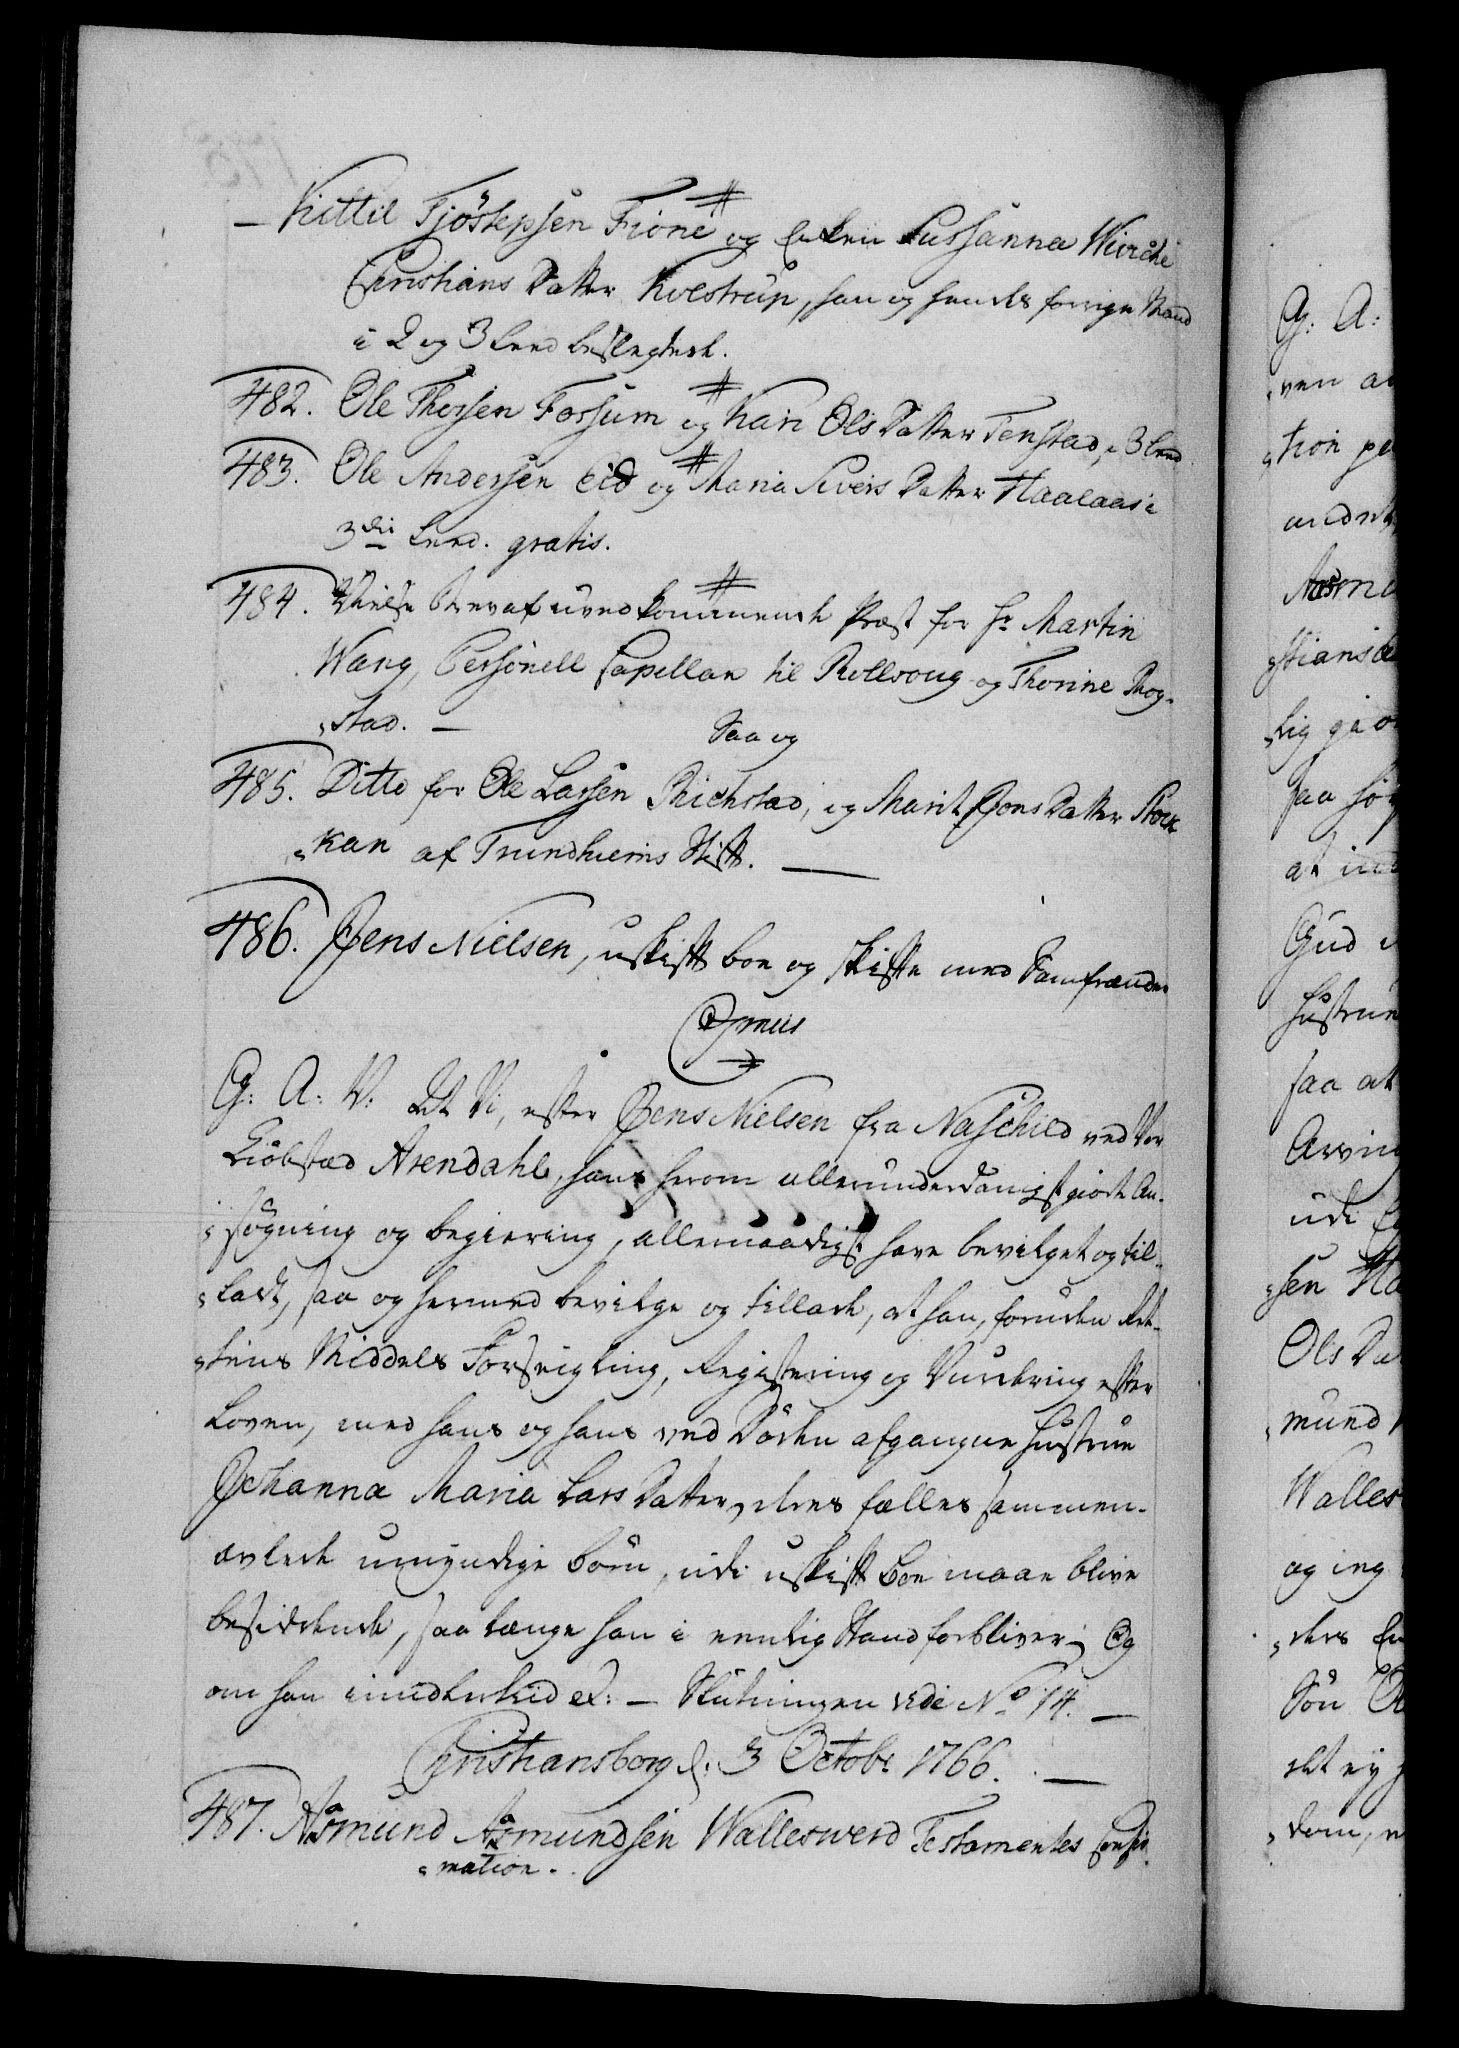 - Kittil Tjöstelsen Fione og Enken Sussanna Wiviche
Christians Datter Kvestrup, han og hendes forrige Mand
i 2 og 3 Leed beslegtede.
482. Ole Thorsen Forsum og Kari Ols Datter Tenstad, i 3 Leed
483. Ole Andersen Eid og Maria Sivers Datter Haalaas i
3die Leed. gratis.
484. Vielse Brev af uvedkommende Præst for Hr Martin
Wang, Personell Capellan til Rollvoug og Thorine Rog-
„stad. —
Saa og
485. Ditto for Ole Larsen Richstad, og Marit Jons Datter Stock
„kan af Trundhiems Stift. —
486. Jens Nielsen, uskift boe og skifte med Samfrænder
G: A: V: At Vi, efter Jens Nielsen fra Naschild ved Vor
Kiöbstæd Arendahl, hans herom allerunderdanigst giorte An-
„søgning og begiering, allernaadigst have bevilget og til-
„ladt, saa og hermed bevilge og tillade, at han, foruden Ret-
„tens Middels Forseigling, Registering og Vurdering efter
Loven, med hans og hans ved Døden afgangne Hustrue
Johanna Maria Lars Datter, deres fælles sammen-
avlede umyndige börn, udi uskift Boe maae blive
besiddende, saa længe han i eenlig Stand forbliver; Og
om han imidlertid &: — Slutningen vide No 14. —
Christiansborg d: 3 Octobr 1766. —
487. Asmund Asmundsen Walleswerd Testamentes Confir
„mation.
G: A:
ven a
„tion pa
„stiansd
„lig gio
saa
at
Gud
Hustrue
saa at
Arving
udi
„sen
Ols Da
„mund
Walles
og ing
„des
Sön
det ey
„dom,